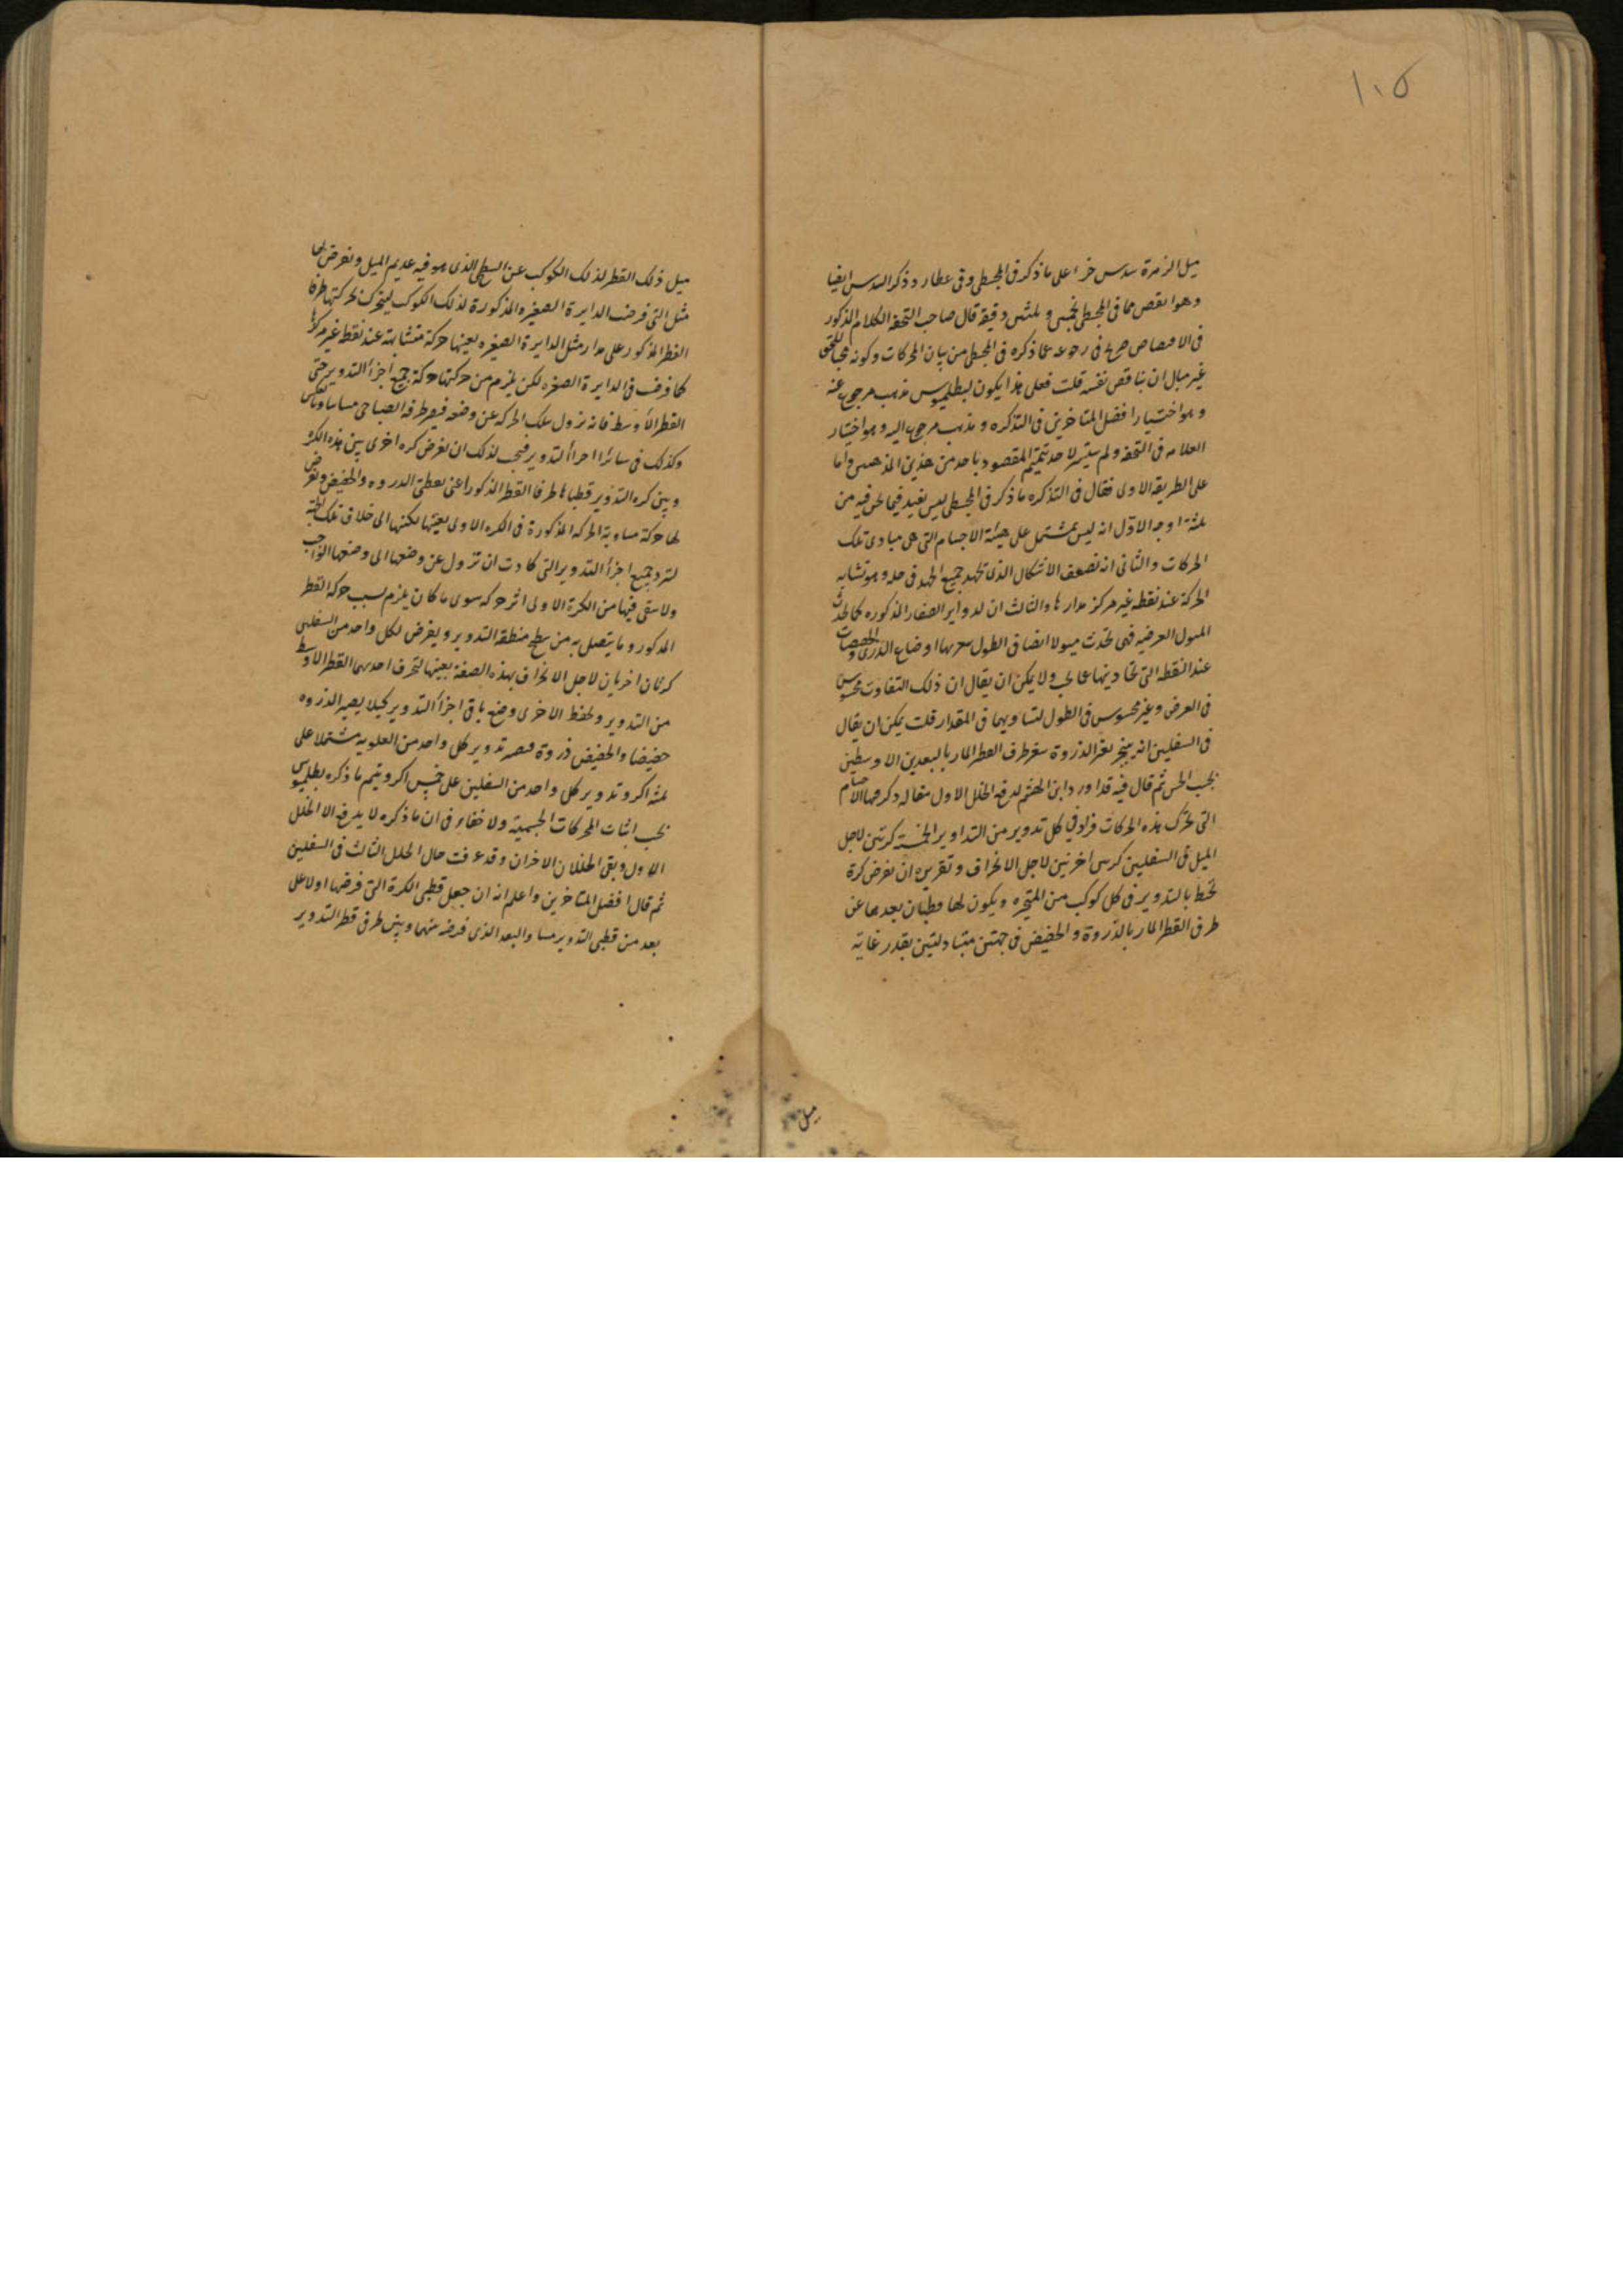 ١٠٥
ميل الزهرة سدس جزء على ما ذكر فى المجسطى وفى عطارد ذكر السدس ايضا
وهو انقص مما فى المجسطى بخمس وثلثين دقيقة قال صاحب التحفة الكلام المذكور
فى الاقتصاص صريح فى رجوعه عما ذكره فى المجسطى من بيان الحركات وكونه محبا للحق
غير مبال ان يناقض نفسه قلت فعلى هذا يكون لبطلميوس مذهب مرجوع عنه
وهو اختيار افضل المتاخرين فى التذكره ومذهب مرجوع اليه وهو اختيار
العلامه فى التحفه ولم يتيسر لاحد تتميم المقصود باحد من هذين المذهبين واما
على الطريقه الاولى فقال فى التذكره ما ذكر فى المجسطى ليس بمفيد فيما نحن فيه من
ثلثة اوجه الاول انه ليس بمشتمل على هيئة الاجسام التى هى مبادى تلك
الحركات والثانى انه تضعف الاشكال الذى نجهد جميع الجهد فى حله وهو تشابه
الحركة عند نقطه غير مركز مدارها والثالث ان الدواير الصغار المذكوره كما تحدث
الميول العرضيه فهى تحدث ميولا ايضا فى الطول اوضاع الذرى والحضيضات
عند النقطه التى تحاذيها عما يجب ولا يمكن ان يقال ان ذلك التفاوت محسوس
فى العرض وغير محسوس فى الطول لتساويهما فى المقدار قلت يمكن ان يقال
فى السفليين انه ينجبر تغير الذروة بتغير طرف القطر المار بالبعدين الاوسطين
بحسب الحس ثم قال فيه قد اورد ابن الهيثم لدفع الخلل الاول مقاله ذكر فيها الاجسام
التى تحرك هذه الحركات فزاد فى كل تدوير من التداوير الخمسة كرتين لاجل
الميل فى السفليين كرتين اخريين لاجل الانحراف وتقريره ان نفرض كرة
تحيط بالتدوير فى كل كوكب من المتحيره ويكون لها قطبان بعدهما عن
طرفى القطر المار بالذروة والحضيض فى جهتين متبادلتين بقدر غاية
ميل
ميل ذلك القطر لذلك الكوكب عن السطح الذى هو فيه عديم الميل ونفرض لها
مثل التى فرضت الدايرة الصغيره المذكورة لذلك الكوكب ليتحرك بحركتها طرفا
القطر المذكور على مدار مثل الدايرة الصغيره بعينها حركة متشابهة عند نقطة غير مركزها
كما فرضت فى الدايرة الصغيره لكن يلزم من حركتها حركة جميع اجزأ التدوير حتى
القطر الأوسط فانه يزول بتلك الحركه عن وضعه فيصير طرفه الصباحى مسائيا وبالعكس
وكذلك فى سائر اجزأ التدوير فيجب لذلك ان نفرض كره اخرى بين هذه الكرة
وبين كره التدوير قطباها طرفا القطر المذكور اعنى نقطتى الذروه والحضيض ونفرض
لها حركة مساوية للحركه المذكورة فى الكره الاولى بعينها لكنها الى خلاف تلك الجهة
لترد جميع اجزأ التدوير التى كادت ان تزول عن وضعها الى وضعها الواجب
ولا يبقى فيها من الكرة الاولى اثر حركه سوى ما كان يلزم بسبب حركة القطر
المذكور وما يتصل به من سطح منطقة التدوير ويفرض لكل واحد من السفليين
كرتان اخريان لاجل الانحراف بهذه الصفة بعينها لتحرف احديهما القطر الاوسط
من التدوير وتحفظ الاخرى وضع باقى اجزأ التدوير كيلا يصير الذروه
حضيضا والحضيض ذروة فيصير تدوير كل واحد من العلويه مشتملا على
ثلثه اكر وتدوير كل واحد من السفليين على خمس اكر ويتم ما ذكره بطلميوس
بحسب اثبات المحركات الجسمية ولا خفاء فى ان ما ذكره لا يدفع الا الخلل
الاول وبقى الخللان الاخران وقد عرفت حال الخلل الثالث فى السفليين
ثم قال افضل المتاخرين واعلم انه ان جعل قطبى الكرة التى فرضها اولا على
بعد من قطبى التدوير مساو للبعد الذى فرضه منهما وبين طرفى قطر التدوير